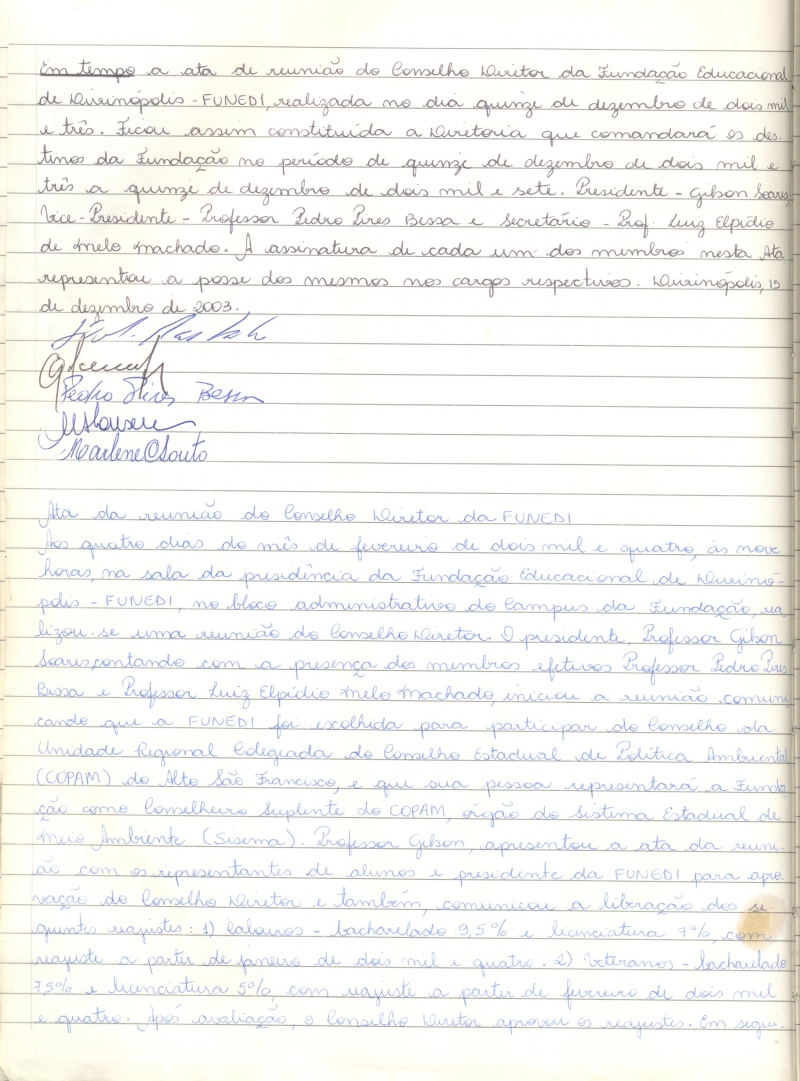 Em tempo a ata de reunião do Conselho Diretor da Fundação Educacional
de Divinópolis - FUNEDI, realizada no dia quinze de dezembro de dois mil
e três. Ficou assim constituída a Diretoria que comandará os des-
tinos da Fundação no período de quinze de dezembro de dois mil e
três a quinze de dezembro de dois mil e sete. Presidente - Gilson Soares,
Vice-Presidente - Professor Pedro Pires Bessa e Secretário - Prof. Luiz Elpídio
de Melo Machado. A assinatura de cada um dos membros nesta Ata
representou a posse dos mesmos nos cargos respectivos. Divinópolis, 15
de dezembro de 2003.
Pedro Pires Bessa
Marlene C Souto
Ata da reunião do Conselho Diretor da FUNEDI
Aos quatro dias do mês de fevereiro de dois mil e quatro, às nove
horas, na sala da presidência da Fundação Educacional de Divinó-
polis - FUNEDI, no bloco administrativo do Campus da Fundação, rea
lizou-se uma reunião do Conselho Diretor. O presidente, Professor Gilson
Soares, contando com a presença dos membros efetivos Professor Pedro Pires
Bessa e Professor Luiz Elpídio Melo Machado, iniciou a reunião comuni
cando que a FUNEDI foi escolhida para participar do Conselho da
Unidade Regional Colegiada do Conselho Estadual de Política Ambiental
(COPAM) do Alto São Francisco, e que sua pessoa representará a Funda-
ção como Conselheiro Suplente do COPAM, órgão do Sistema Estadual de
Meio Ambiente (Sisema). Professor Gilson, apresentou a ata da reuni-
ão com os representantes de alunos e presidente da FUNEDI para apro-
vação do Conselho Diretor e também, comunicou a liberação dos se
guintes reajustes: 1) Calouros - bacharelado 9,5% e licenciatura 7%, com
reajuste a partir de janeiro de dois mil e quatro. 2) Veteranos - bacharelado
7,5% e licenciatura 5%, com reajuste a partir de fevereiro de dois mil
e quatro. Após avaliação, o Conselho Diretor aprovou os reajustes. Em segui-